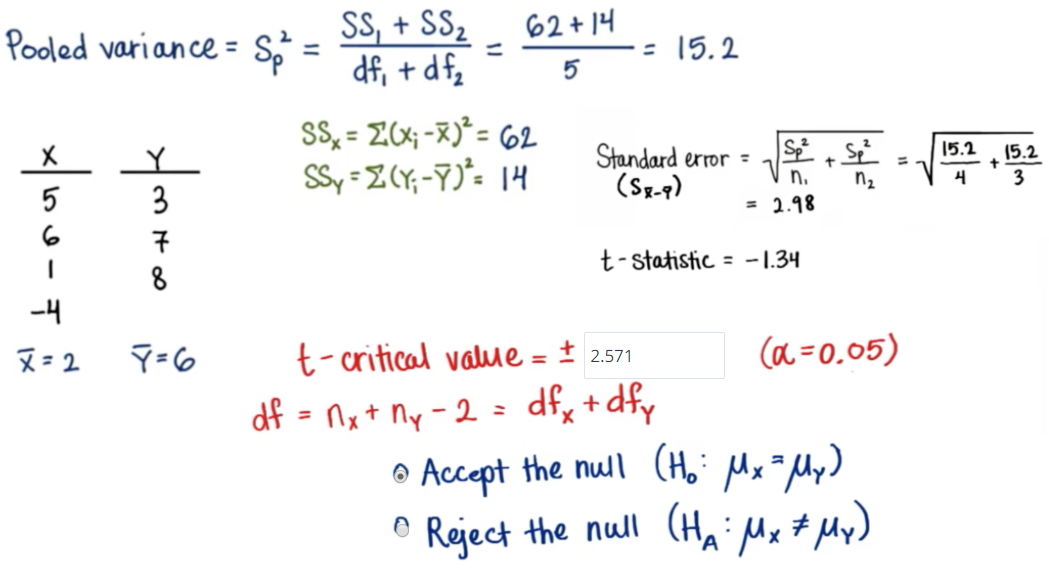 Pooled variance = Sp² = (SS₁ + SS₂) / (df₁ + df₂) = (62 + 14) / 5 = 15.2
SSₓ = Σ(xᵢ - x̄)² = 62
SSᵧ = Σ(Yᵢ - Ȳ)² = 14
Standard error = √(Sp²/n₁ + Sp²/n₂) = √(15.2/4 + 15.2/3)
(Sx̄-ȳ)
= 2.98
t-statistic = -1.34
X Y
5 3
6 7
1 8
-4
X̄ = 2 Ȳ = 6
t-critical value = ± 2.571 (α = 0.05)
df = nₓ + nᵧ - 2 = dfₓ + dfᵧ
Accept the null (H₀: μₓ = μᵧ)
Reject the null (H_A: μₓ ≠ μᵧ)